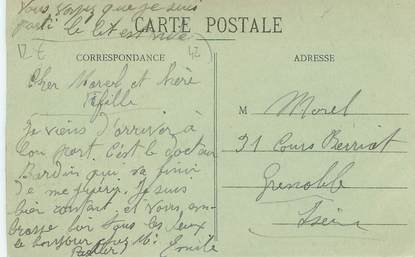 Vous voyez que je suis
parti le lit est vide
CARTE POSTALE
CORRESPONDANCE
ADRESSE
Cher Morel et
Je viens d'arriver à
bon port. C'est le docteur
Bardin qui va finir
de me Je suis
bien content et vous em-
brasse tous les deux
le bonjour chez Mr
Emile
M Morel
91 Cours Berriat
Grenoble
Isère